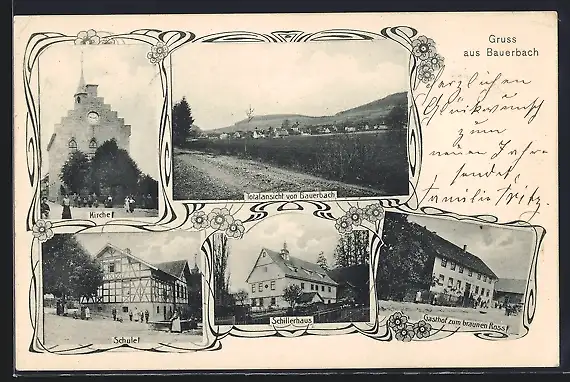 Gruss
aus Bauerbach
Herzlichen
Glückwunsch
zum
neuen Jahre
sendet
Familie
Kirche
Totalansicht von Bauerbach
Schule
Schillerhaus
Gasthof zum braunen Ross